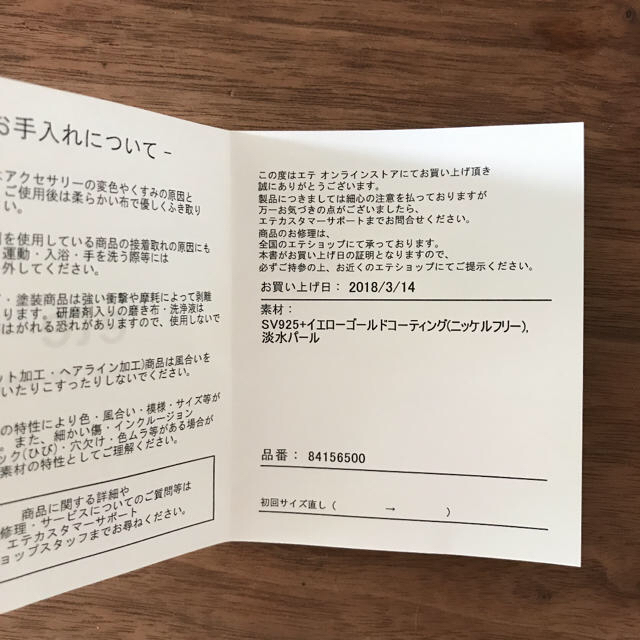 お手入れについて -
アクセサリーの変色やくすみの原因と
ご使用後は柔らかい布で優しくふき取り
さい。
を使用している商品の接着取れの原因にも
運動・入浴・手を洗う際等には
外してください。
・塗装商品は強い衝撃や摩耗によって剥離
ります。研磨剤入りの磨き布・洗浄液は
はがれる恐れがありますので、使用しないで
ット加工・ヘアライン加工)商品は風合いを
いたりこすったりしないでください。
の特性により色・風合い・模様・サイズ等が
。また、細かい傷・インクルージョン
ック(ひび)・穴欠け・色ムラ等がある場合が
素材の特性としてご理解ください。
商品に関する詳細や
修理・サービスについてのご質問等は
エテカスタマーサポート
ョップスタッフまでお尋ねください。
この度はエテ オンラインストアにてお買い上げ頂き
誠にありがとうございます。
製品につきましては細心の注意を払っておりますが
万一お気づきの点がございましたら、
エテカスタマーサポートまでお問合せください。
商品のお修理は、
全国のエテショップにて承っております。
本書がお買い上げ日の証明となりますので、
必ずご持参の上、お近くのエテショップにてご提示ください。
お買い上げ日： 2018/3/14
素材：
SV925+イエローゴールドコーティング(ニッケルフリー),
淡水パール
品番： 84156500
初回サイズ直し（ → ）